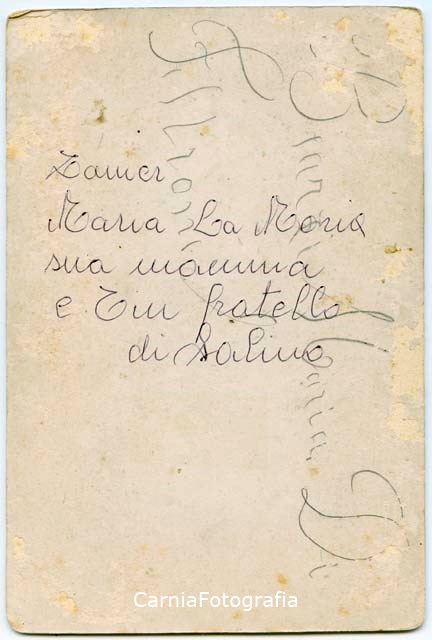 Zamer
Maria La Moria
sua mamma
e Em fratello
di Salino
Maria Di
CarniaFotografia